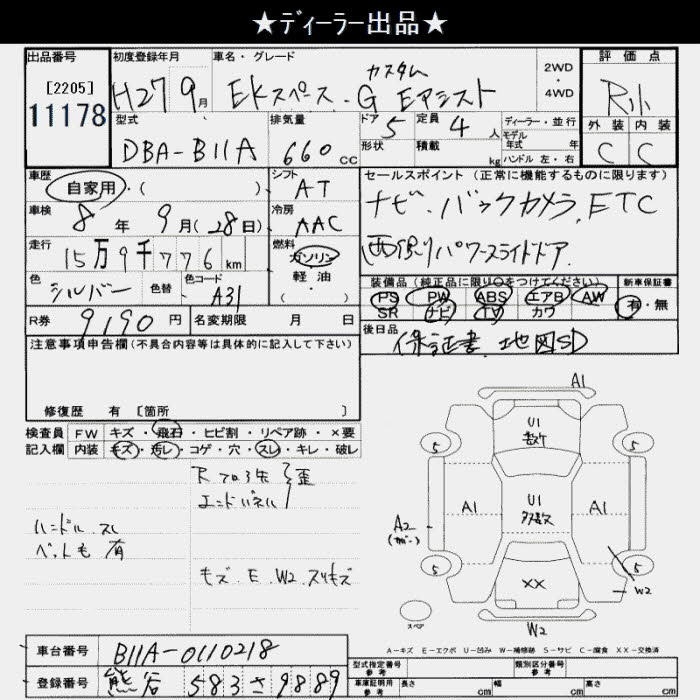 ★ディーラー出品★
出品番号 初度登録年月 車名・グレード 評価点
[2205]
11178
H27 9月 EKスペース・カスタム G Eアシスト 2WD・4WD R小
型式 排気量 ドア 定員 ディーラー・並行 外装 内装
DBA-B11A 660cc 5 4人 モデル年式 年式 C C
形状 積載 kg ハンドル 左・右
車歴 シフト セールスポイント(正常に機能するものに限ります)
自家用・( ) AT ナビ・バックカメラ,ETC
車検 冷房
8年 9月(28日) AAC 両側パワースライドドア
走行 燃料
15万9千776km ガソリン・軽・油・( )
装備品(純正品に限り○をつけてください) 新車保証書
色 色替 色コード PS PW ABS エアB AW 有・無
シルバー A31 SR ナビ TV カワ
R券 9190円 名変期限 月 日 後日品
保証書、地図SD
注意事項申告欄(不具合内容等は具体的に記入して下さい)
修復歴 有 [箇所 ]
検査員 FW キズ・飛石・ヒビ割・リペア跡・×要
記入欄 内装 キズ・汚レ・コゲ・穴・スレ・キレ・破レ
Rフロア先 歪
エンドパネル
ハンドル スレ
ペット毛 有
キズ E W2 スリキズ
A1
U1
数ケ
5 5
A1 U1 A1
多数
A2
(カバー)
5 5
XX
W2
スペア
W2
A-キズ E-エクボ U-凹み W-補修跡 S-サビ C-腐食 XX-交換済
車台番号 B11A-0110218
型式指定番号 参考 類別区分番号 参考
登録番号 熊谷 583 さ 9889
車庫証明用 参考 長さ cm 幅 cm 高さ cm